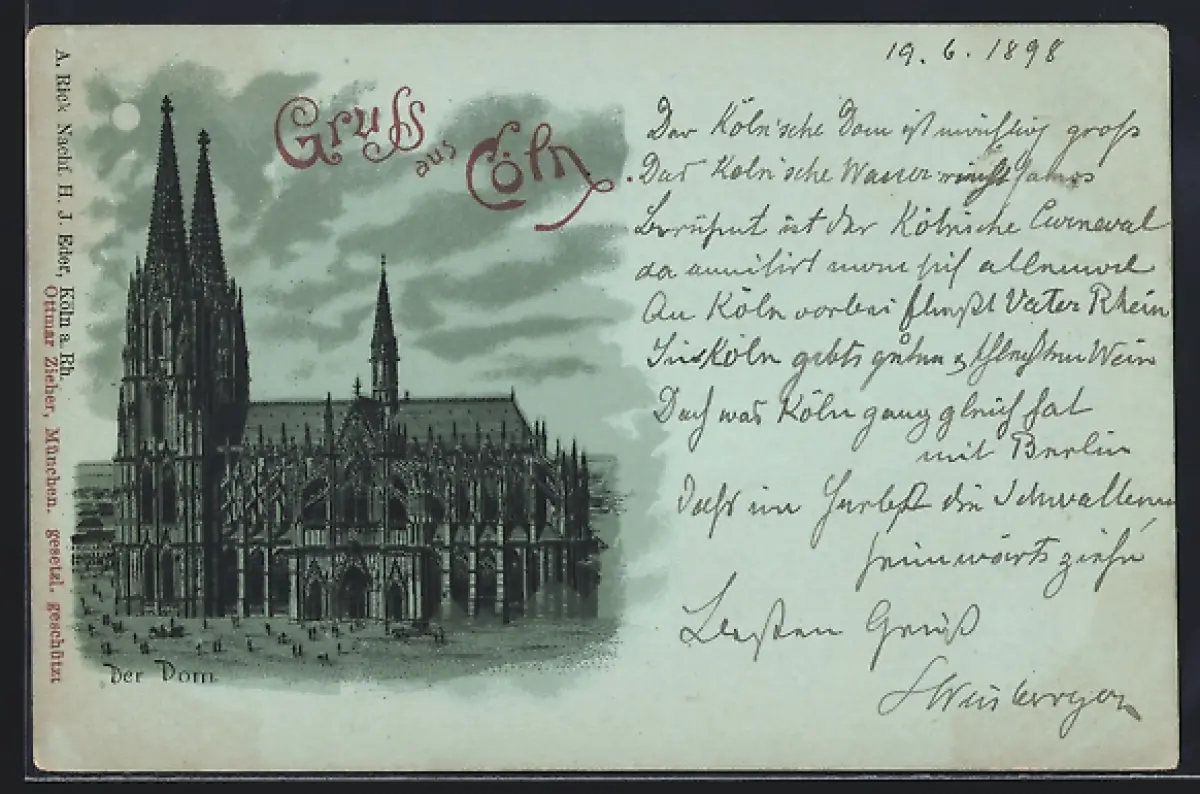 19. 6. 1898
A. Rick Nachf. H. J. Eter, Köln a. Rh.
Ottmar Zieher, München. gesetzl. geschützt
Gruß
aus
Cöln.
Der Dom
Der Köln'sche Dom ist mächtig groß
Das Köln'sche Wasser riecht famos
Berühmt ist der Kölnische Carneval
da amüsirt man sich allemal
An Köln vorbei fließt Vater Rhein
In Köln gebts guten & schlechten Wein
Doch was Köln ganz gleich hat
mit Berlin
Daß im Herbst die Schwalben
heimwärts ziehn
Besten Gruß